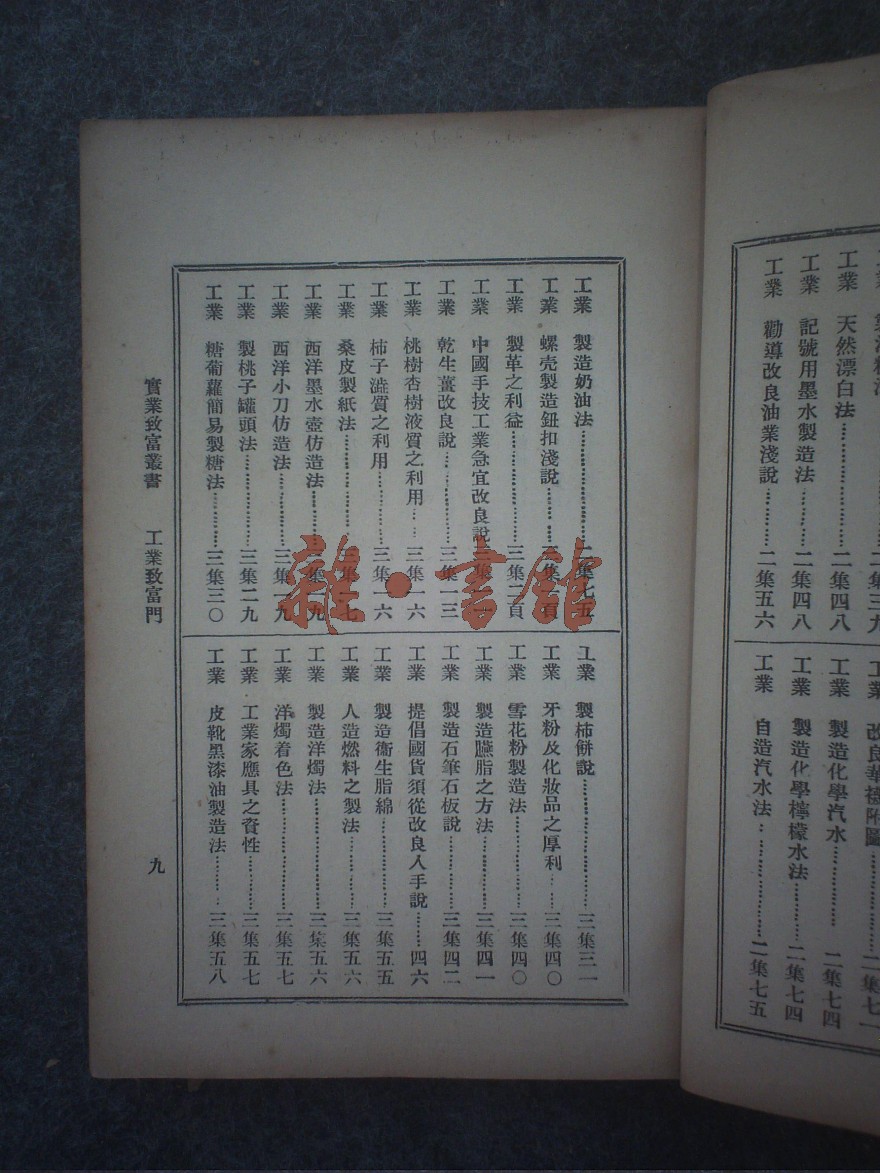 工業 天然漂白法………二集四八
工業 記號用墨水製造法……二集四八
工業 勸導改良油業淺說……二集五六
工業 改良華襪附圖………二集七一
工業 製造化學汽水………二集七四
工業 製造化學檸檬水法……二集七四
工業 自造汽水法………二集七五
工業 製造奶油法………二集七五
工業 螺壳製造鈕扣淺說
工業 製革之利益………三集二頁
工業 中國手技工業急宜改良說
工業 乾生薑改良說………三集一三
工業 桃樹杏樹液質之利用……三集一六
工業 柿子澁質之利用………三集一六
工業 桑皮製紙法
工業 西洋墨水壺仿造法
工業 西洋小刀仿造法………三集一九
工業 製桃子罐頭法………三集二九
工業 糖葡蘿簡易製糖法……三集三〇
工業 製柿餅說………三集三一
工業 牙粉及化妝品之厚利……三集四〇
工業 雪花粉製造法………三集四〇
工業 製造臙脂之方法………三集四一
工業 製造石筆石板說………三集四二
工業 提倡國貨須從改良入手說……四六
工業 製造衛生脂綿………三集五五
工業 人造燃料之製法………三集五六
工業 製造洋燭法………三集五六
工業 洋燭着色法………三集五七
工業 工業家應具之資性………三集五七
工業 皮靴黑漆油製造法………三集五八
實業致富叢書 工業致富門 九
雜·書館